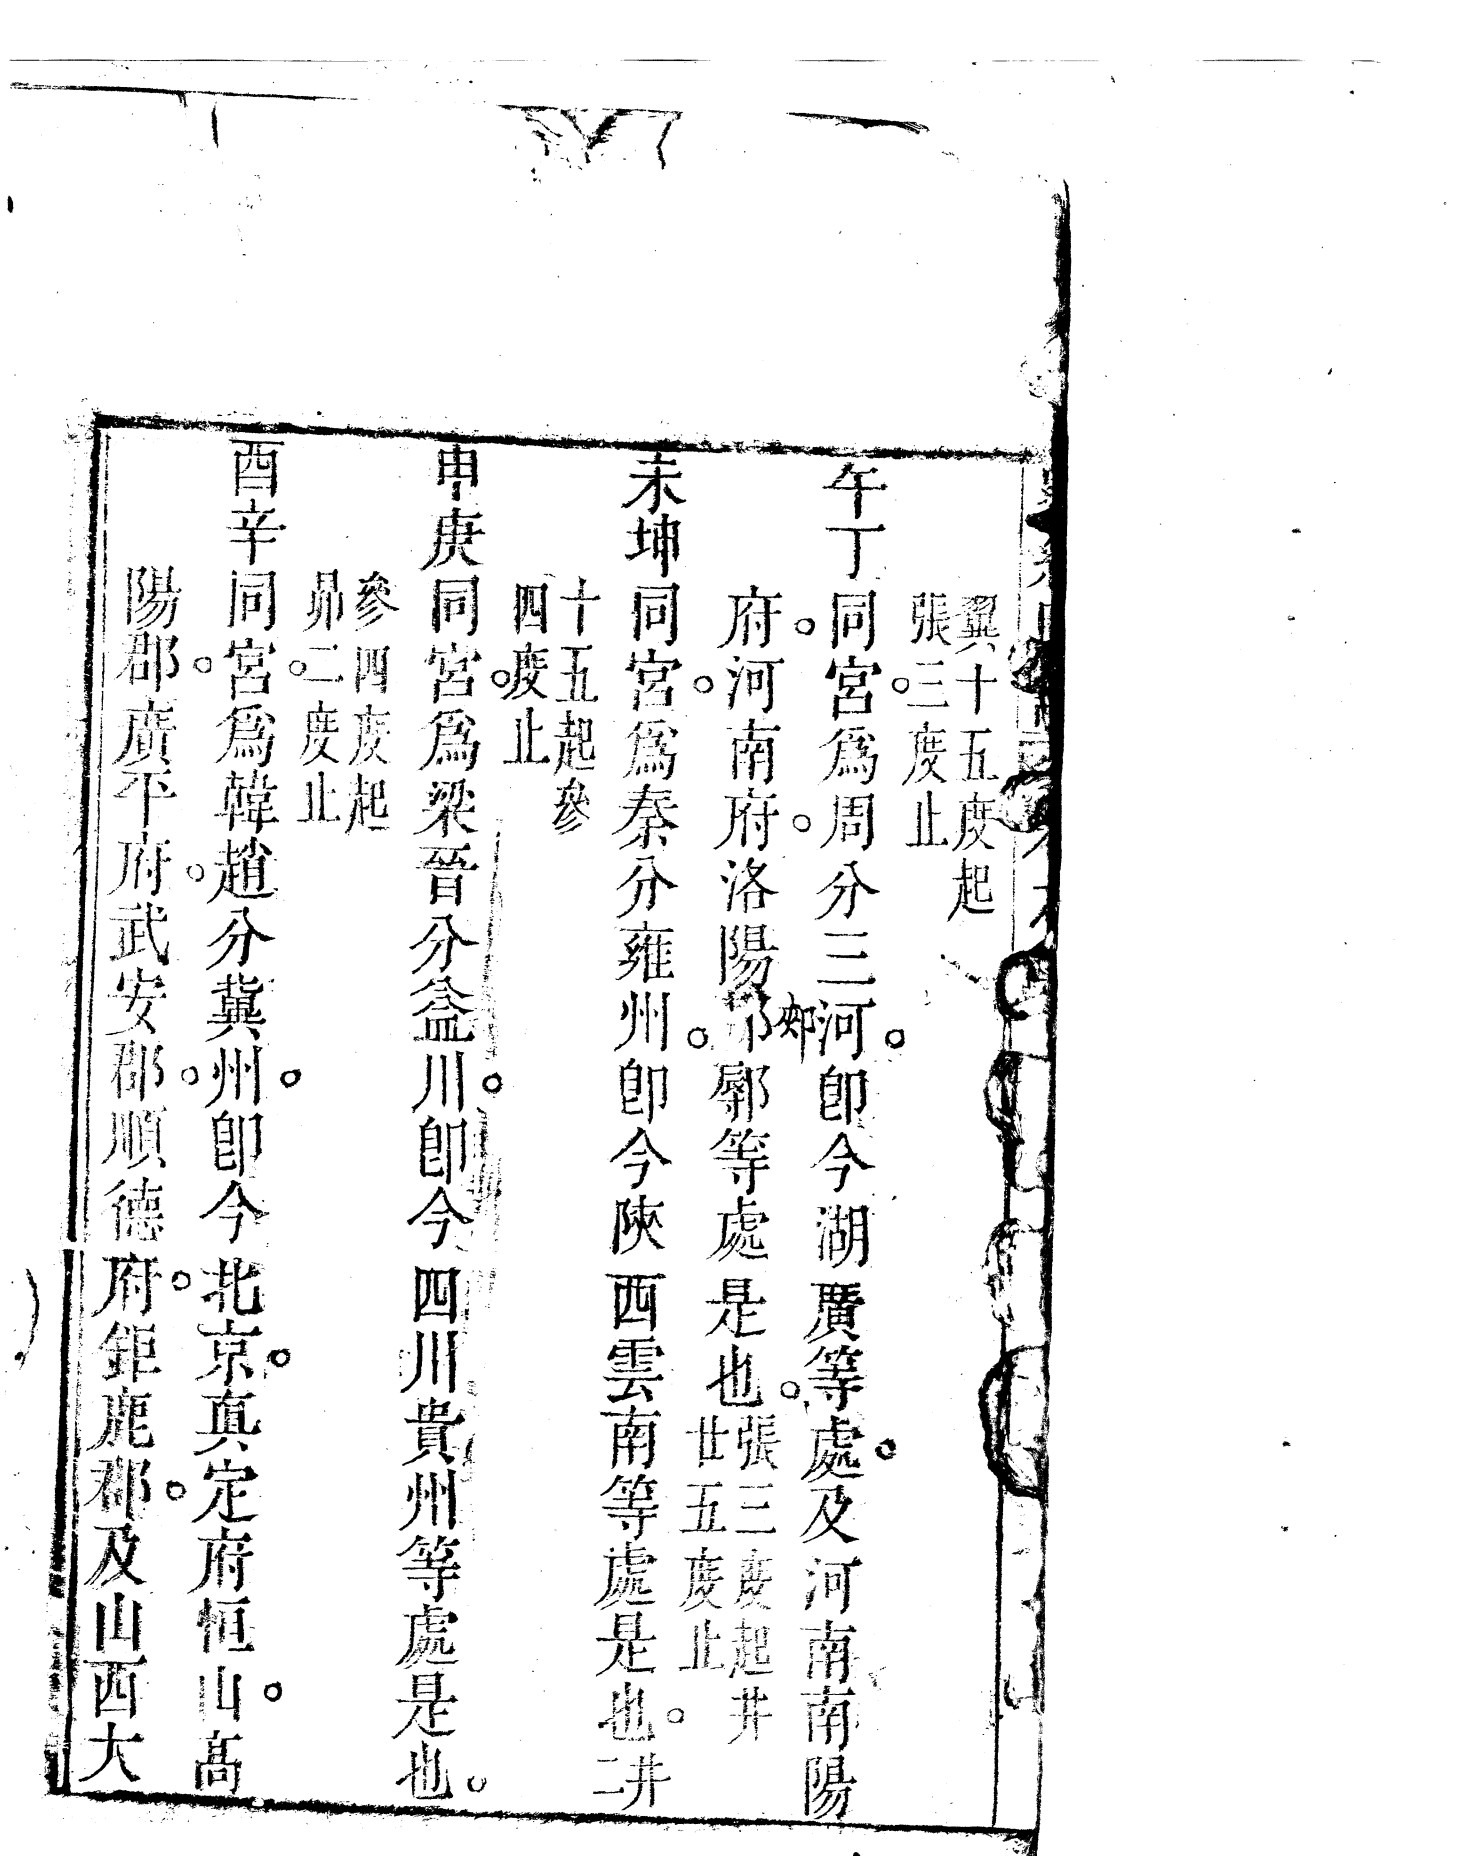 翼十五度起
張三度止
午丁同宮爲周分三河卽今湖廣等處及河南南陽
府河南府洛陽郟鄏等處是也張三度起井
廿五度止
未坤同宮爲秦分雍州卽今陜西雲南等處是也井二
十五起參
四度止
申庚同宮爲梁晉分益川卽今四川貴州等處是也
參四度起
昴二度止
酉辛同宮爲韓趙分冀州卽今北京真定府恒山高
陽郡廣平府武安郡順德府鉅鹿郡及山西大